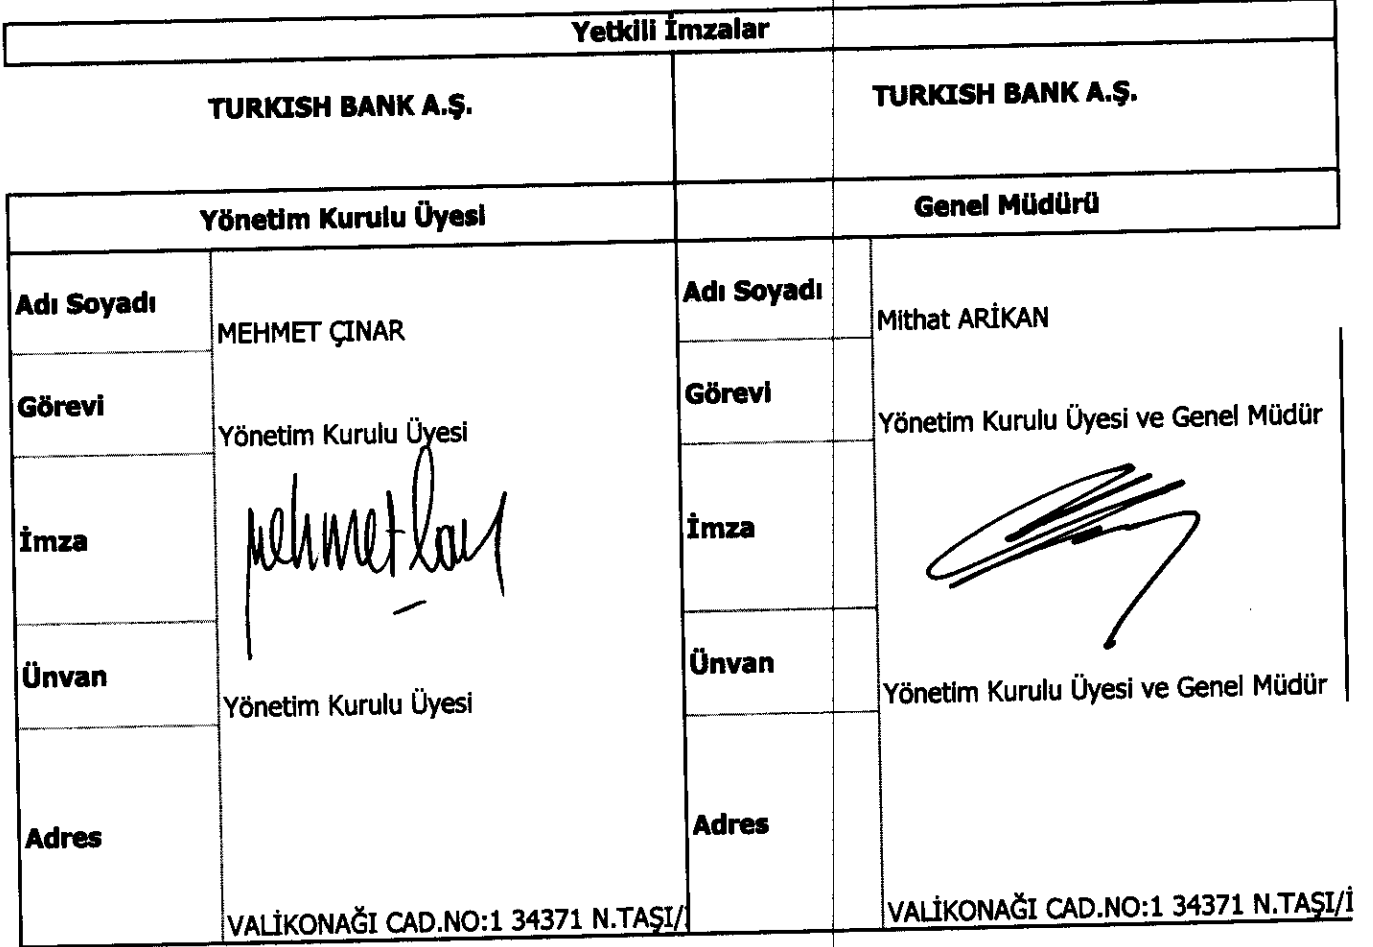 Yetkili İmzalar
TURKISH BANK A.Ş. TURKISH BANK A.Ş.
Yönetim Kurulu Üyesi Genel Müdürü
Adı Soyadı MEHMET ÇINAR Adı Soyadı Mithat ARİKAN
Görevi Yönetim Kurulu Üyesi Görevi Yönetim Kurulu Üyesi ve Genel Müdür
İmza mehmet İmza
Ünvan Yönetim Kurulu Üyesi Ünvan Yönetim Kurulu Üyesi ve Genel Müdür
Adres VALİKONAĞI CAD.NO:1 34371 N.TAŞI/ Adres VALİKONAĞI CAD.NO:1 34371 N.TAŞI/İ